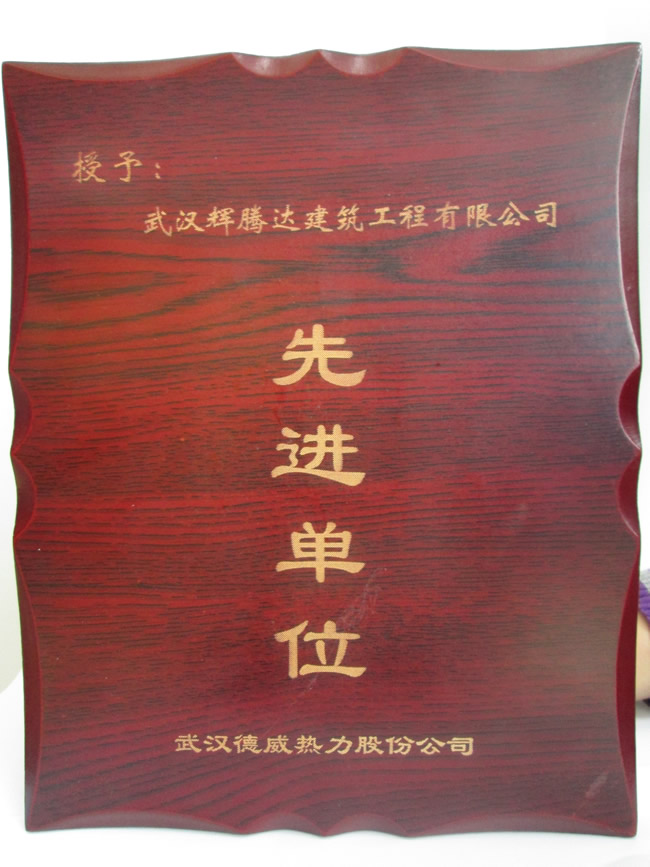 授予：
武汉辉腾达建筑工程有限公司
先
进
单
位
武汉德威热力股份公司